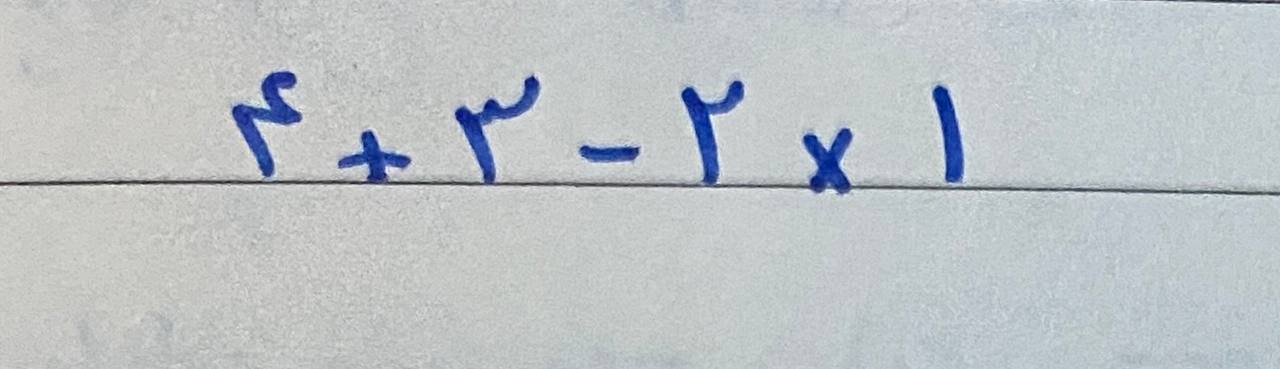 ۴ + ۳ - ۲ × ۱